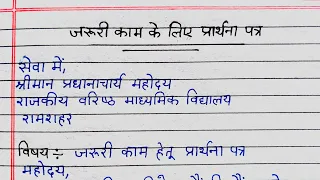 जरूरी काम के लिए प्रार्थना पत्र
सेवा में,
श्रीमान प्रधानाचार्य महोदय
राजकीय वरिष्ठ माध्यमिक विद्यालय
रामशहर
विषय :- जरूरी काम हेतू प्रार्थना पत्र
महोदय,